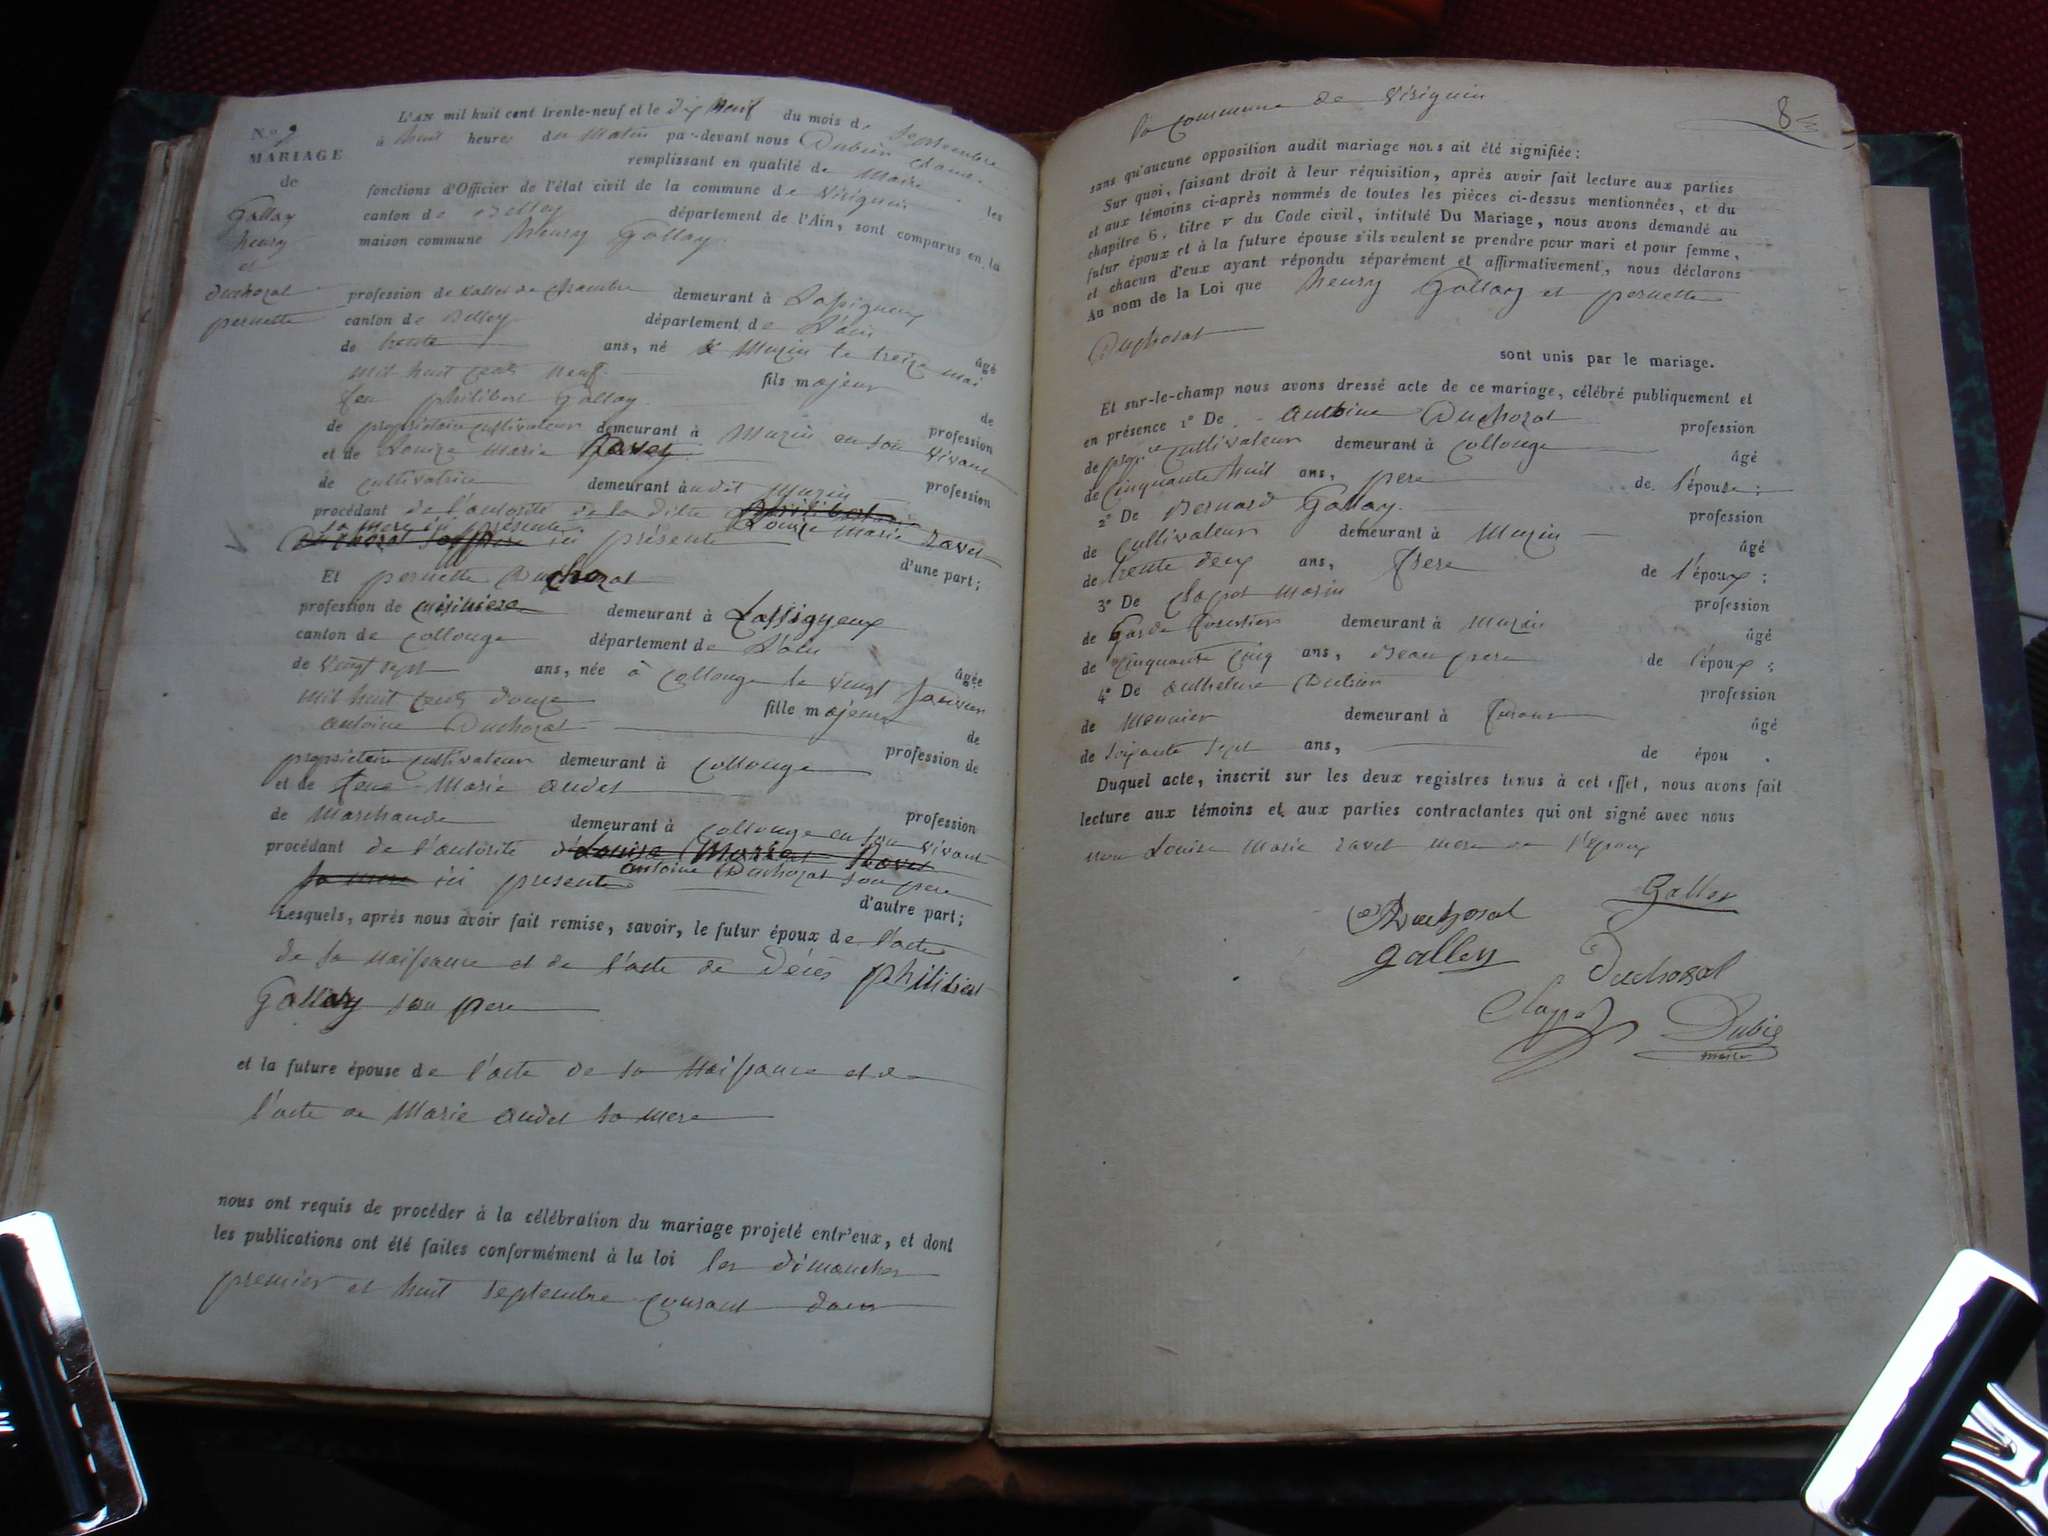 L'AN mil huit cent trente-neuf et le dix neuf du mois de Septembre
à huit heures du Matin par-devant nous Dubien
remplissant en qualité de Maire les
fonctions d'Officier de l'état civil de la commune de Virignin
canton de Belley département de l'Ain, sont comparus en la
maison commune henry Gallay
N.o
MARIAGE
de
Gallay
henry
et
Duchozal
pernette
profession de Vallet de chambre demeurant à Lassigneux
canton de Belley département de L'ain âgé
de trente ans, né à Muzin le treize mai
mil huit cent neuf fils majeur de
feu philibert Gallay profession
de propriétaire cultivateur demeurant à Muzin en son vivant
et de Louize Marie Ravet profession
de cultivatrice demeurant audit Muzin
procédant de l'autorité de la ditte Louize Marie Ravet
sa mere ici présente
Duchozal son pere ici présente
d'une part;
Et pernette Duchozal
profession de cuisiniere demeurant à Lassigneux
canton de Collonge département de L'ain âgée
de vingt sept ans, née à Collonge le vingt Janvier
mil huit cent douze fille majeure de
antoine Duchozal profession de
propriétaire cultivateur demeurant à Collonge
et de feue Marie audet profession
de Marchande demeurant à Collonge en son vivant
procédant de l'autorité d'Louise Marie Ravet
antoine Duchozal son pere
sa mere ici presente
d'autre part;
Lesquels, après nous avoir fait remise, savoir, le futur époux de l'acte
de sa naissance et de l'acte de décès philibert
Gallay son pere
et la future épouse de l'acte de sa naissance et de
l'acte de Marie audet sa mere
nous ont requis de procéder à la célébration du mariage projeté entr'eux, et dont
les publications ont été faites conformément à la loi les dimanches
premier et huit septembre courant dans
8
la commune de Virignin
sans qu'aucune opposition audit mariage nous ait été signifiée:
Sur quoi, faisant droit à leur réquisition, après avoir fait lecture aux parties
et aux témoins ci-après nommés de toutes les pièces ci-dessus mentionnées, et du
chapitre 6, titre V du Code civil, intitulé Du Mariage, nous avons demandé au
futur époux et à la future épouse s'ils veulent se prendre pour mari et pour femme,
et chacun d'eux ayant répondu séparément et affirmativement, nous déclarons
Au nom de la Loi que henry Gallay et pernette
Duchozal
sont unis par le mariage.
Et sur-le-champ nous avons dressé acte de ce mariage, célébré publiquement et
en présence 1° De antoine Duchozal profession
de cultivateur demeurant à Collonge âgé
de cinquante huit ans, pere de l'épouse;
2° De Bernard Gallay profession
de cultivateur demeurant à Muzin âgé
de trente deux ans, frere de l'époux;
3° De Clapot Marin profession
de Garde forestier demeurant à Muzin âgé
de cinquante cinq ans, Beau pere de l'époux;
4° De anthelme Dubien profession
de Meunier demeurant à âgé
de soixante sept ans, de épou .
Duquel acte, inscrit sur les deux registres tenus à cet effet, nous avons fait
lecture aux témoins et aux parties contractantes qui ont signé avec nous
non Louise Marie ravet mere de l'époux
Galley
Duchosal
galley
Duchozal
Clapot
Dubie
maire